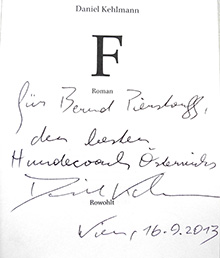 Daniel Kehlmann
F
Roman
Für Bernd
den besten
Hundecoach Österreichs
Daniel Kehlmann
Rowohlt
Wien, 16.9.2013